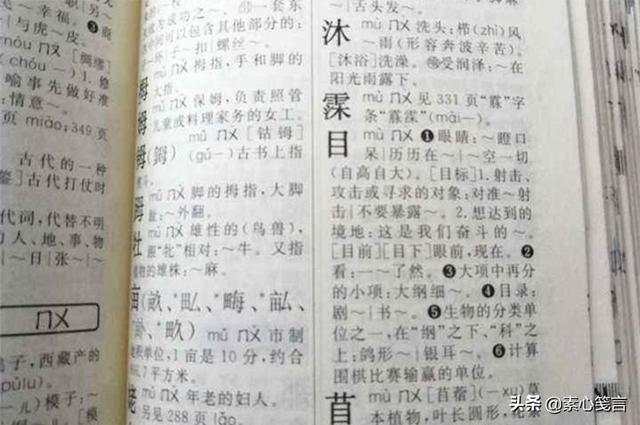 职|另～
与～皮。❸商
(chóu一) 1. 修
喻事先做好准
情意～。
页 miǎo;349页
古代的一种
古代打仗时
代词,代替不明
人、地、事、物
～日|张～|～
ㄇㄨ
子,西藏产的
pǔlu)。
一儿)模子:～
为成功之～。
一套东
中可以包含其他部分的:
子～扣|螺丝～。
mǔ ㄇㄨ 拇指,手和脚的
大指。
姆 mǔ ㄇㄨ 保姆,负责照管
儿童或料理家务的女工。
mǔ ㄇㄨ [钴姆]
(鉧) (gǔ一)古书上指
mǔ ㄇㄨ 脚的拇指,大脚
～外翻。
牡 mǔ ㄇㄨ 雄性的(鸟兽),
跟“牝”相对:～牛。又指
植物的雄株:～麻。
亩(畝、*畆、*畮、*畒、
*畝、*畂) mǔ ㄇㄨ 市制
地积单位,1亩是10分,约合
平方米。
姥 mǔ ㄇㄨ 年老的妇人。
另见288页 lǎo。
舌头发～。
沐 mù ㄇㄨ 洗头:栉(zhì)风
～雨(形容奔波辛苦)。
[沐浴]洗澡。㊋受润泽:～在
阳光雨露下。
霂 mù ㄇㄨ 见331页“霡”字
条“霡霂”(mài一)。
目 mù ㄇㄨ ❶眼睛:～瞪口
呆|历历在～|～空一切
(自高自大)。[目标] 1. 射击、
攻击或寻求的对象:对准～射
击|不要暴露～。2. 想达到的
境地:这是我们奋斗的～。
[目前][目下]眼前,现在。❷
看:一～了然。❸大项中再分
的小项:大纲细～。❹目录:
剧～|书～。❺生物的分类单
位之一,在“纲”之下、“科”之
上:鸽形～|银耳～。❻计算
围棋比赛输赢的单位。
苜 mù ㄇㄨ [苜蓿](一xu)草
本植物,叶长圆形,花紫
头条 @素心笺言